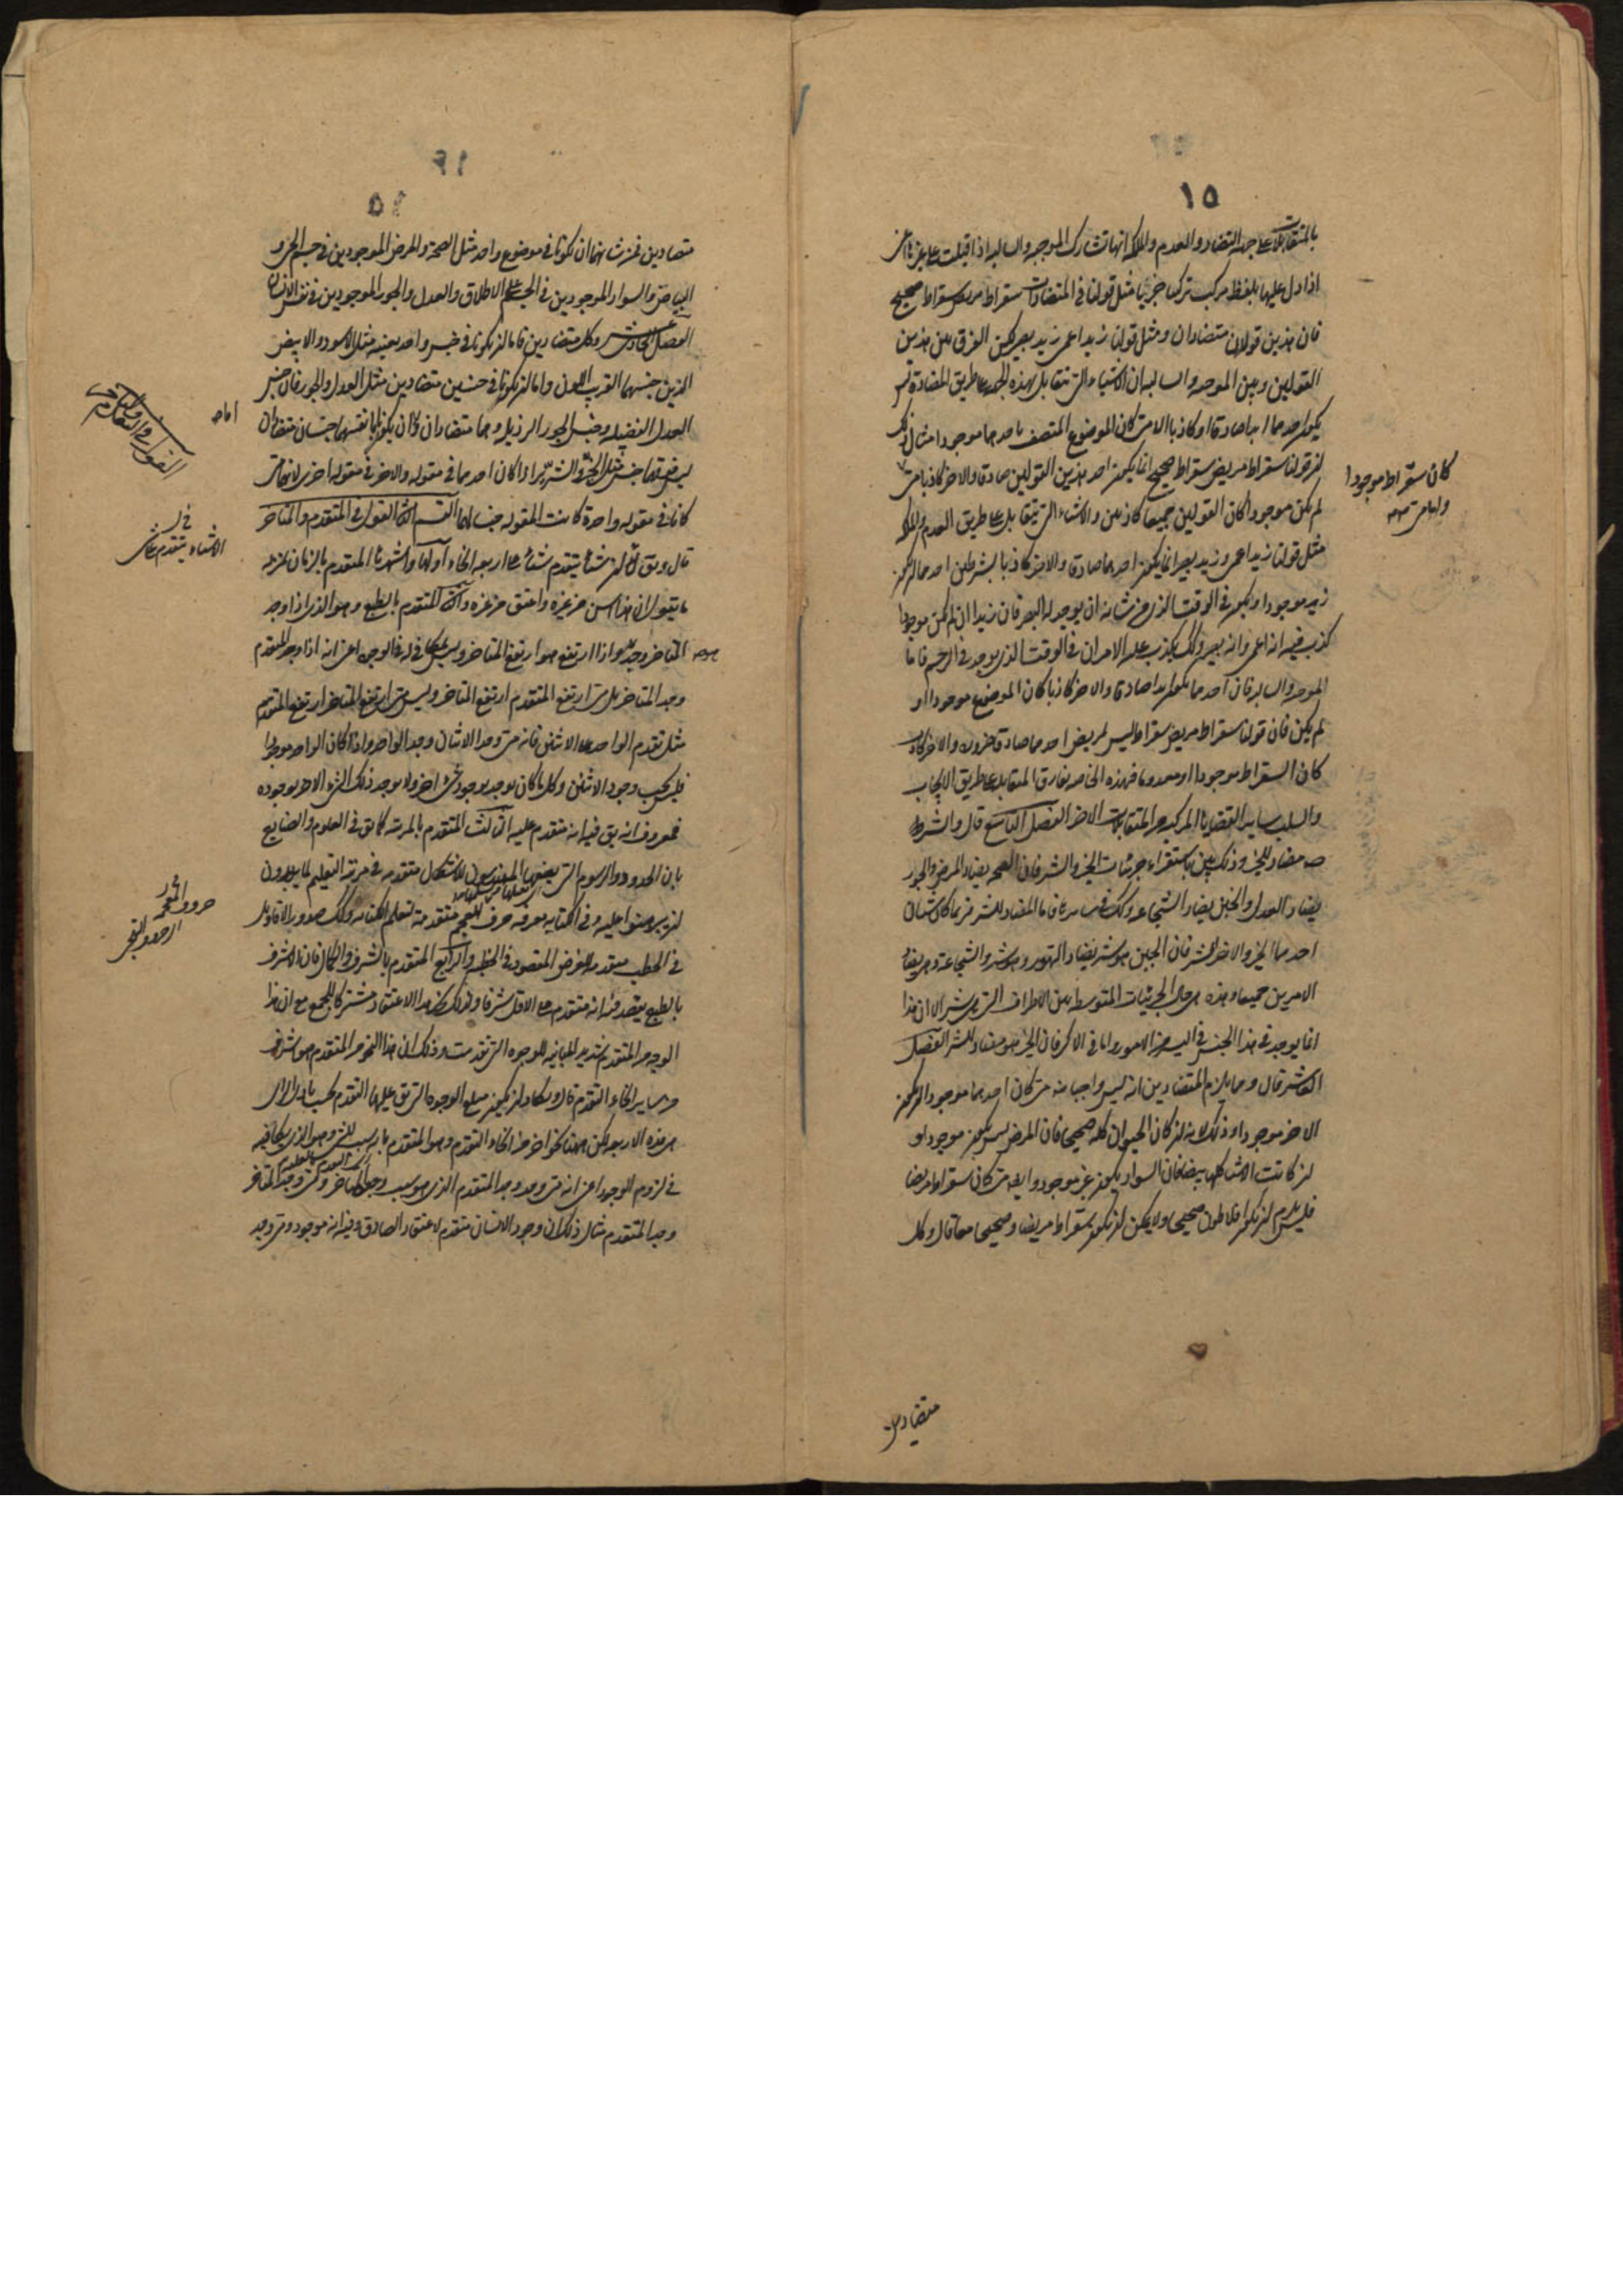 ١٥
بالمتقابلات على جهة التضاد والعدم والملكة انها تشارك الموجبة والسالبة اذا قيلت
اذا دل عليها بلفظ مركب تركيبا خبريا مثل قولنا في المتضادات سقراط مريض سقراط صحيح
فان هذين قولان متضادان ومثل قولنا زيد اعمى زيد بصير لكن الفرق بين هذين
القولين وبين الموجبة والسالبة ان الاشياء التي تتقابل بهذه الجهة على طريق المضادة ليس
يكون احدهما ابدا صادقا او كاذبا الا متى كان الموضوع المتصف باحدهما موجودا مثال ذلك
ان قولنا سقراط مريض سقراط صحيح انما يكون احد هذين القولين صادقا والاخر كاذبا متى
كان سقراط موجودا
لم يكن موجودا كان القولين جميعا كاذبين والاشياء التي تتقابل على طريق العدم والملكة
مثل قولنا زيد اعمى وزيد بصير انما يكون احدهما صادقا والاخر كاذبا بشرطين احدهما ان يكون
زيد موجودا ويكون في الوقت الذي من شانه ان يوجد له البصر فان زيدا ان لم يكن موجودا
كذب فيه انه اعمى وانه بصير وكذلك يكذب عليه الامران في الوقت الذي يوجد في الرحم فاما
الموجبة والسالبة فان احدهما يكون ابدا صادقا والاخر كاذبا كان الموضوع موجودا او
لم يكن فان قولنا سقراط مريض سقراط ليس بمريض احدهما صادق ضرورة والاخر كاذب
كان السقراط موجودا او معدوما فهذه الخاصه تفارق المتقابلة على طريق الايجاب
والسلب ساير القضايا المركبة من المتقابلات الاخر الفصل التاسع قال والشر
مضاد للخير وذلك بين باستقراء جزئيات الخير والشر فان الصحه يضاد المرض والجور
يضاد العدل والجبن يضاد الشجاعه وكذلك في ساير فاما المضاد للشر فربما كان شيئان
احدهما الخير والاخر الشر فان الجبن هو شر يضاد التهور وهو شر والشجاعة وهي يضاد
الامرين جميعا وهذه هي حال الجزئيات المتوسطة بين الاطراف التي هي شر الا ان هذا
انما يوجد في هذا الجنس في اليسير من الامور واما في الاكثر فان الخير هو مضاد للشر الفصل
العاشر قال ومما يلزم المتضادين انه ليس واجبا متى كان احدهما موجودا ان يكون
الاخر موجودا وذلك لانه ان كان الحيوان كله صحيحا فان المرض ليس يكون موجودا و
ان كانت الاشياء كلها بيضا فان السواد يكون غير موجود وايضا متى كان سقراط مريضا
فليس يلزم ان يكون افلاطون صحيحا ولا يمكن ان يكون سقراط مريضا وصحيحا معا قال وكل
متضادين
متضادين فمن شانهما ان يكونا في موضوع واحد مثل الصحة والمرض الموجودين في جسم الحي و
البياض والسواد الموجودين في الجسم على الاطلاق والعدل والجور الموجودين في نفس الانسان
الفصل الحادي عشر وكل متضادين فاما ان يكونا في جنس واحد بعينه مثل الاسود والابيض
الذين جنسهما القريب اللون واما ان يكونا في جنسين متضادين مثل العدل والجور فان جنس
العدل الفضيلة وجنس الجور الرذيلة وهما متضادان واما ان يكونا بانفسهما جنسان متضادان
ليس فوقهما جنس مثل الخير والشر اذا كان احدهما في مقولة والاخر في مقولة اخرى لانهما متى
كانا في مقولة واحدة كانت المقولة جنسا لهما القسم الثاني القول في المتقدم والمتاخر
القول في المتقدم والمتاخر
قال ويقال ان شيئا يتقدم شيئا على اربعة انحاء اولها واشهرها المتقدم بالزمان
ما يقول ان هذا اسن من غيره واعتق من غيره والثاني المتقدم بالطبع وهو الذي اذا وجد
المتاخر وجد هو واذا ارتفع هو ارتفع المتاخر وليس يتكافى في الوجود اعني انه اذا وجد المتقدم
وجد المتاخر بل متى ارتفع المتقدم ارتفع المتاخر وليس متى ارتفع المتاخر ارتفع المتقدم
مثل تقدم الواحد على الاثنين فانه متى وجد الاثنان وجد الواحد واذا كان الواحد موجودا
فليس يجب وجود الاثنين وكل ما كان يوجد بوجود شيء اخر ولا يوجد ذلك الشيء الاخر بوجوده
فمعروف انه يق فيه انه متقدم عليه الثالث المتقدم بالمرتبة كما يق في العلوم والصنايع
بان الحدود والرسوم التي يضعها المهندسون للاشكال متقدمة في مرتبة التعليم لما يريدون
ان يبرهنوا عليه وفي الكتابة معرفة حروف المعجم متقدمة لتعلم الكتابة وكذلك صدور الاقاويل
حروف المعجم
في الخطب متقدمة للغرض المقصود في الخطبة والرابع المتقدم بالشرف والكمال فان الاشرف
بالطبع يعتقد فيه انه متقدم على الاقل شرفا ولذلك نجد هذا الاعتقاد مشتركا للجميع مع ان هذا
الوجه من المتقدم شديد المباينة للوجوه التي تقدمت وذلك ان هذا النحو من المتقدم هو اشرف
من ساير انحاء التقدم قال ويكاد ان يكون مبلغ الوجوه التي يق عليها التقدم بحسب بادي الراي
هي هذه الاربعة لكن ههنا نحو اخر من انحاء التقدم وهو المتقدم بانه سبب للشيء وهو الذي يكافيه
في لزوم الوجود اعني انه متى وجد المتقدم الذي هو سبب وجد المتاخر ومتى وجد المتاخر
وجد المتقدم مثال ذلك ان وجود الانسان متقدم لاعتقاد الصادق فيه انه موجود ومتى وجد